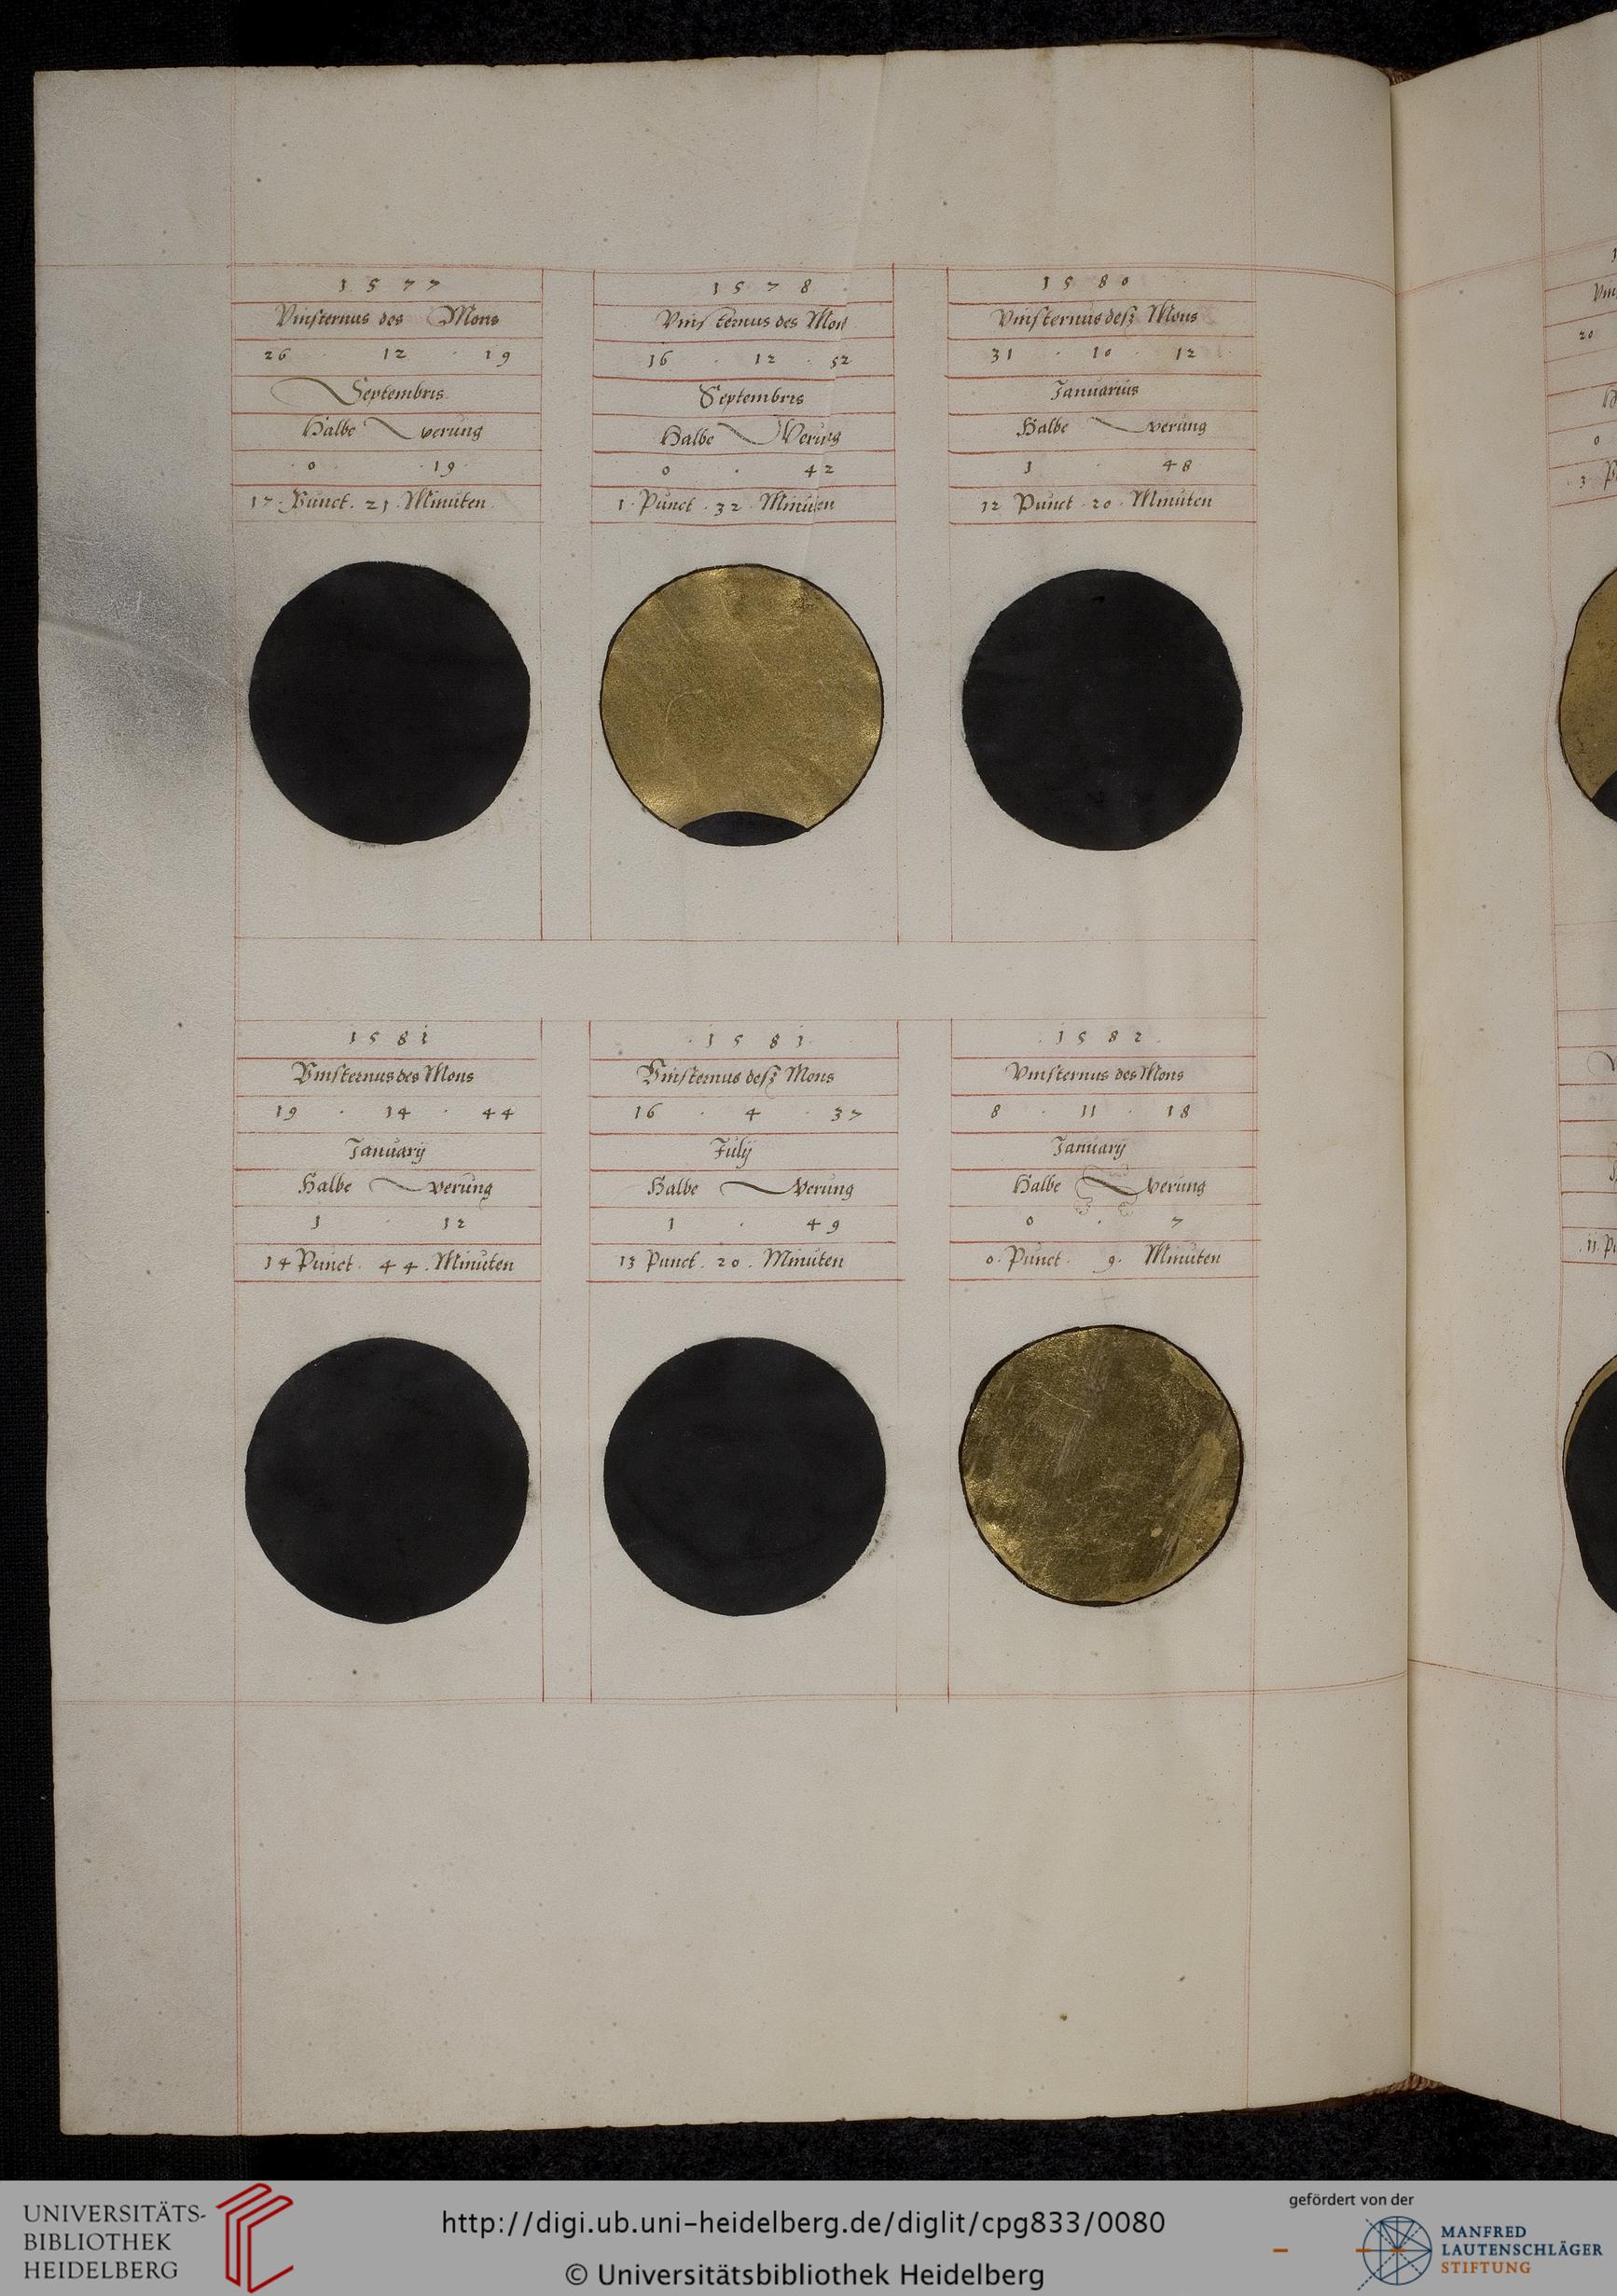 1577
Vinsternus des Mons
26 · 12 · 19
Septembris
Halbe verung
0 · 19
17 · Punct · 21 · Minuten
1578
Vinsternus des Mon
16 · 12 · 52
Septembris
Halbe Verung
0 · 42
1 · Punct · 32 · Minuten
1580
Vinsternus deß Mons
31 · 10 · 12
Januarius
Halbe verung
1 · 48
12 Punct · 20 · Minuten
1581
Vinsternus des Mons
19 · 14 · 44
Januarij
Halbe verung
1 · 12
14 Punct · 44 · Minuten
1581
Vinsternus deß Mons
16 · 4 · 37
Julij
Halbe Verung
1 · 49
13 Punct · 20 · Minuten
1582
Vinsternus des Mons
8 · 11 · 18
Januarij
Halbe Verung
0 · 7
0 · Punct · 9 · Minuten
20
0
3
11
UNIVERSITÄTS-
BIBLIOTHEK
HEIDELBERG
http://digi.ub.uni-heidelberg.de/diglit/cpg833/0080
© Universitätsbibliothek Heidelberg
gefördert von der
MANFRED
LAUTENSCHLÄGER
STIFTUNG